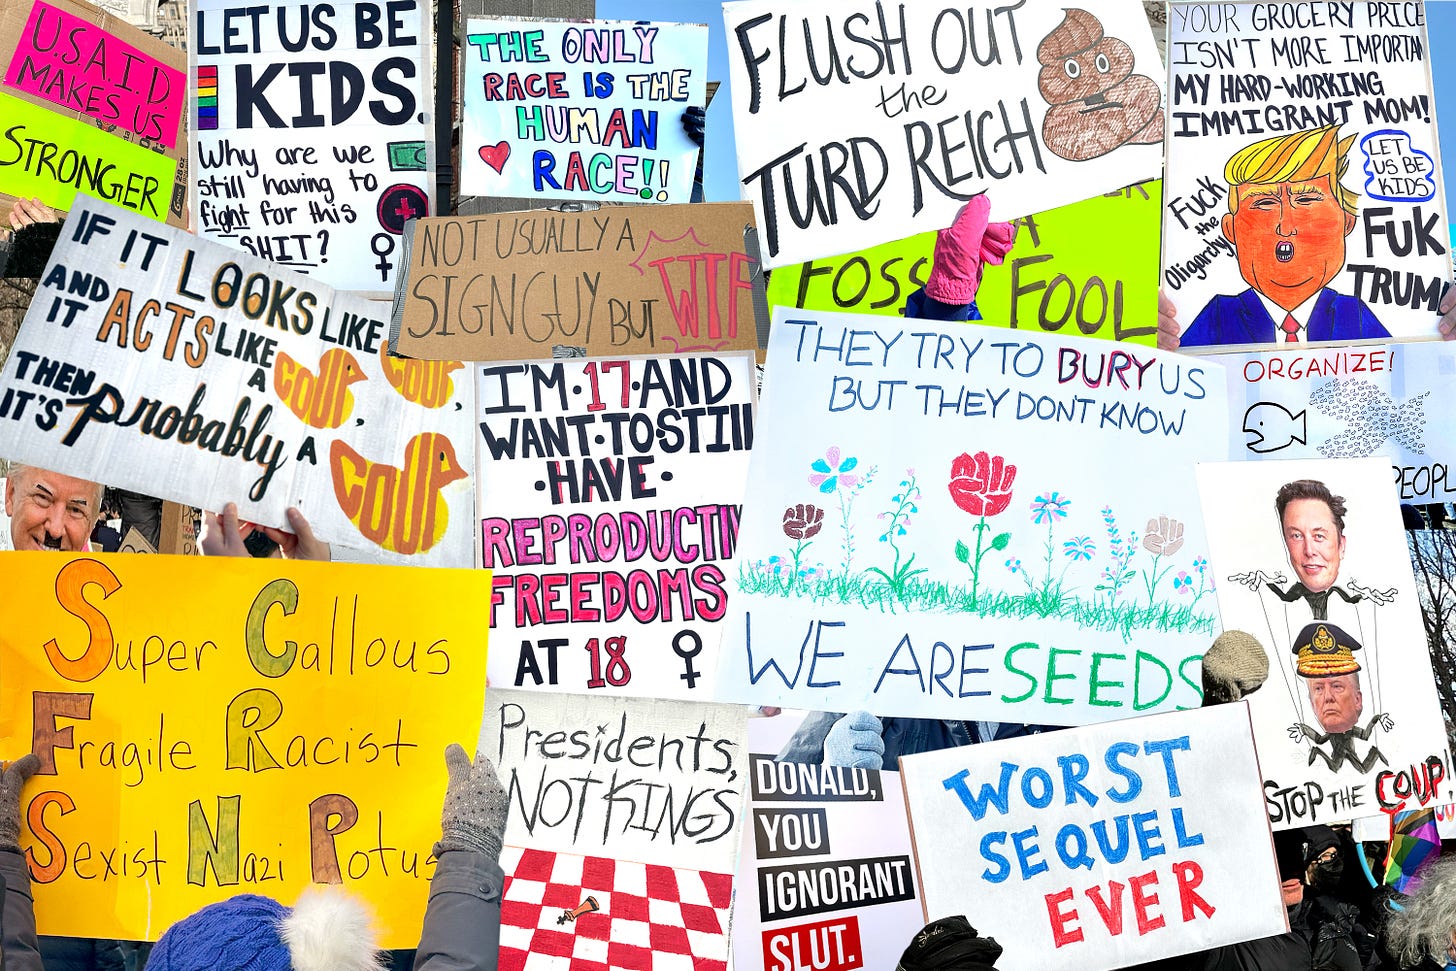 U.S.A.I.D.
MAKES US
STRONGER
LET US BE
KIDS.
Why are we
still having to
fight for this
SHIT?
THE ONLY
RACE IS THE
HUMAN
RACE!!
FLUSH OUT
the
TURD REICH
YOUR GROCERY PRICE
ISN'T MORE IMPORTAN
MY HARD-WORKING
IMMIGRANT MOM!
LET
US BE
KIDS
Fuck
the
Oligarchy
FUK
TRUM
IF IT LOOKS LIKE COUP,
AND IT ACTS LIKE A COUP,
THEN IT'S probably A COUP
NOT USUALLY A
SIGN GUY BUT WTF
A
FOSS FOOL
I'M·17·AND
WANT·TO STILL
·HAVE·
REPRODUCTIV
FREEDOMS
AT 18
THEY TRY TO BURY US
BUT THEY DON'T KNOW
WE ARE SEEDS
ORGANIZE!
PEOPL
STOP THE COUP!
Super Callous
Fragile Racist
Sexist Nazi Potus
Presidents,
NOT KINGS
DONALD,
YOU
IGNORANT
SLUT.
WORST
SEQUEL
EVER